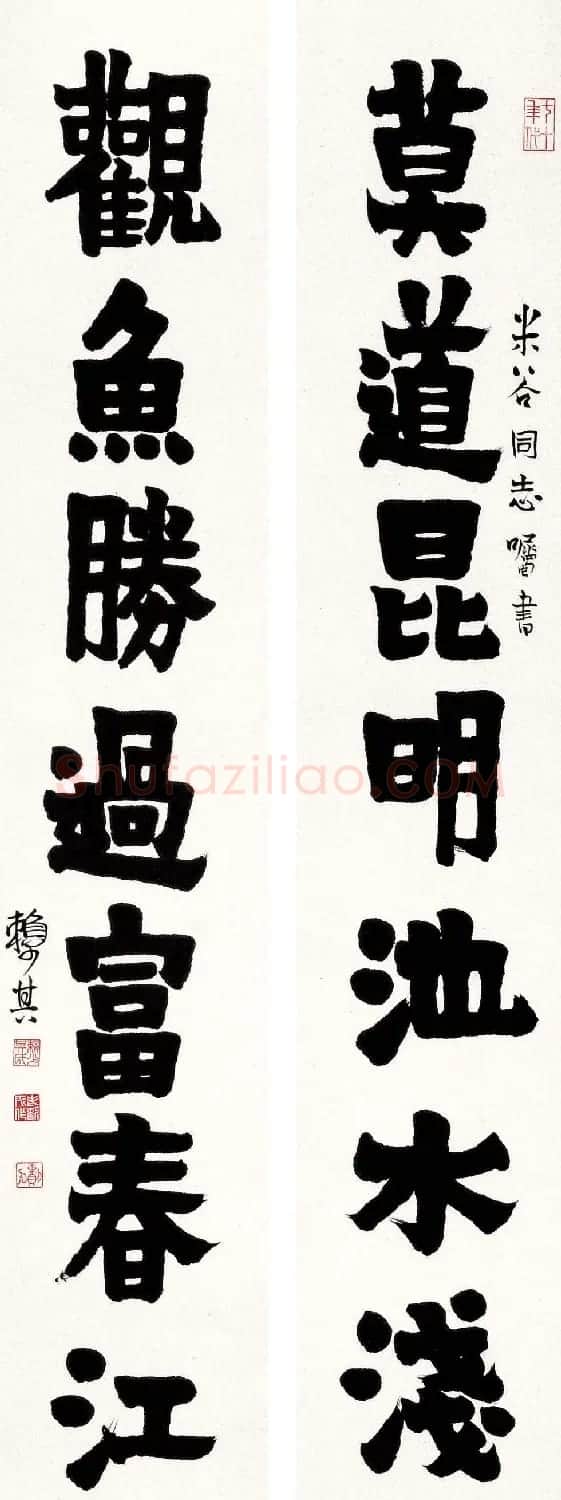 莫道昆明池水淺
米谷同志囑書
觀魚勝過富春江
賴少其
Shufaziliao.COM